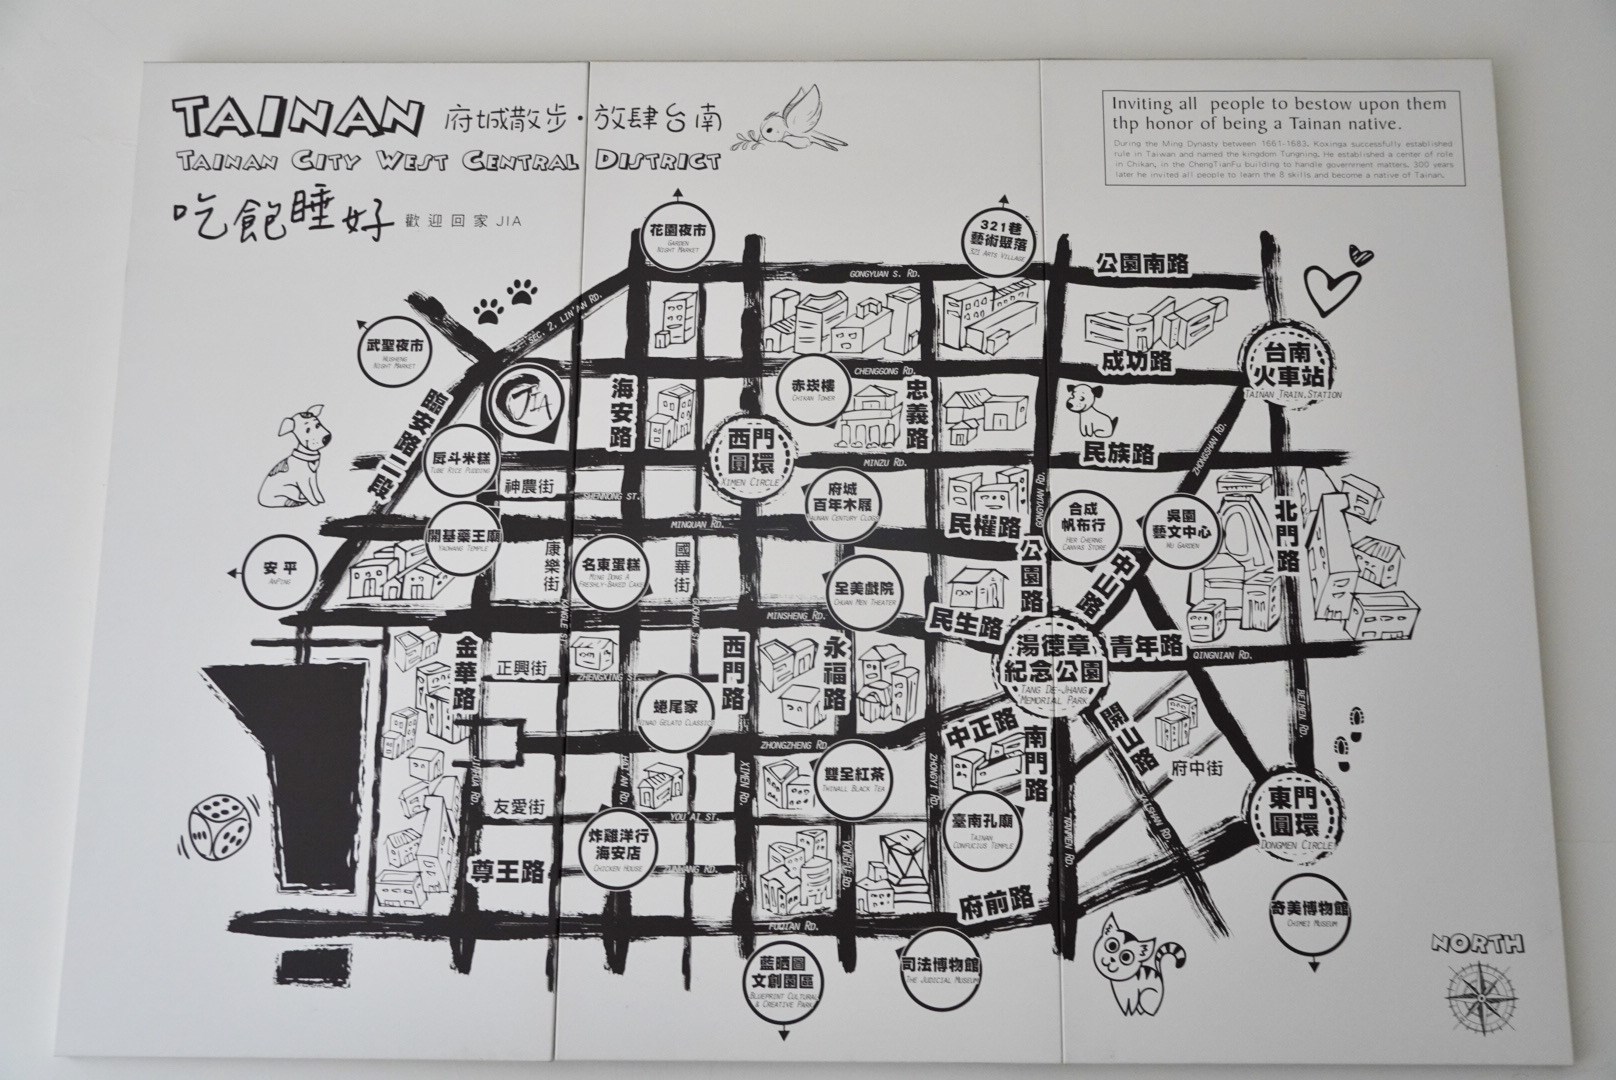 TAINAN 府城散步・放肆台南
TAINAN CITY WEST CENTRAL DISTRICT
吃飽睡好 歡迎回家 JIA
Inviting all people to bestow upon them
thp honor of being a Tainan native.
During the Ming Dynasty between 1661-1683, Koxinga successfully established
rule in Taiwan and named the kingdom Tungning. He established a center of role
in Chikan, in the ChengTianFu building to handle government matters. 300 years
later he invited all people to learn the 8 skills and become a native of Tainan.
花園夜市
GARDEN
NIGHT MARKET
321巷
藝術聚落
321 ARTS VILLAGE
公園南路
GONGYUAN S. RD.
SEC. 2, LIN'AN RD.
武聖夜市
WUSHENG
NIGHT MARKET
台南
火車站
TAINAN TRAIN STATION
成功路
CHENGGONG RD.
赤崁樓
CHIKAN TOWER
JIA
海安路
忠義路
臨安路二段
西門
圓環
XIMEN CIRCLE
民族路
MINZU RD.
ZHONGSHAN RD.
戽斗米糕
TUBE RICE PUDDING
神農街
SHENNONG ST.
府城
百年木屐
TAINAN CENTURY CLOGS
GONGYUAN RD.
合成
帆布行
HER CHERNG
CANVAS STORE
吳園
藝文中心
WU GARDEN
北門路
民權路
MINQUAN RD.
開基藥王廟
YAOWANG TEMPLE
安平
ANPING
康樂街
名東蛋糕
MING DONG A
FRESHLY-BAKED CAKE
國華街
全美戲院
CHUAN MEN THEATER
公園路
中山路
KANGLE ST.
MINSHENG RD.
民生路
湯德章
紀念公園
TANG DE-JHANG
MEMORIAL PARK
青年路
QINGNIAN RD.
金華路
正興街
ZHENGXING ST.
西門路
永福路
BEIMEN RD.
蜷尾家
NINAO GELATO CLASSICO
中正路
ZHONGZHENG RD.
南門路
開山路
府中街
JINHUA RD.
HAI'AN RD.
XIMEN RD.
雙全紅茶
TWINALL BLACK TEA
ZHONGYI RD.
友愛街
YOU'AI ST.
KAISHAN RD.
NANMEN RD.
臺南孔廟
TAINAN
CONFUCIUS TEMPLE
東門
圓環
DONGMEN CIRCLE
炸雞洋行
海安店
CHICKEN HOUSE
尊王路
ZUNWANG RD.
YONGFU RD.
府前路
FUQIAN RD.
奇美博物館
CHIMEI MUSEUM
藍晒圖
文創園區
BLUEPRINT CULTURAL
& CREATIVE PARK
司法博物館
THE JUDICIAL MUSEUM
NORTH